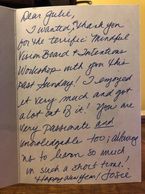 Dear Julie,
I wanted to thank you
for the terrific Mindful
Vision Board & Intentions
Workshop with you this
past Sunday! I enjoyed
it very much and got
a lot out of it! You are
very passionate and
knowledgable too; allowing
us to learn so much
in such a short time!
Happy New Year! Josie